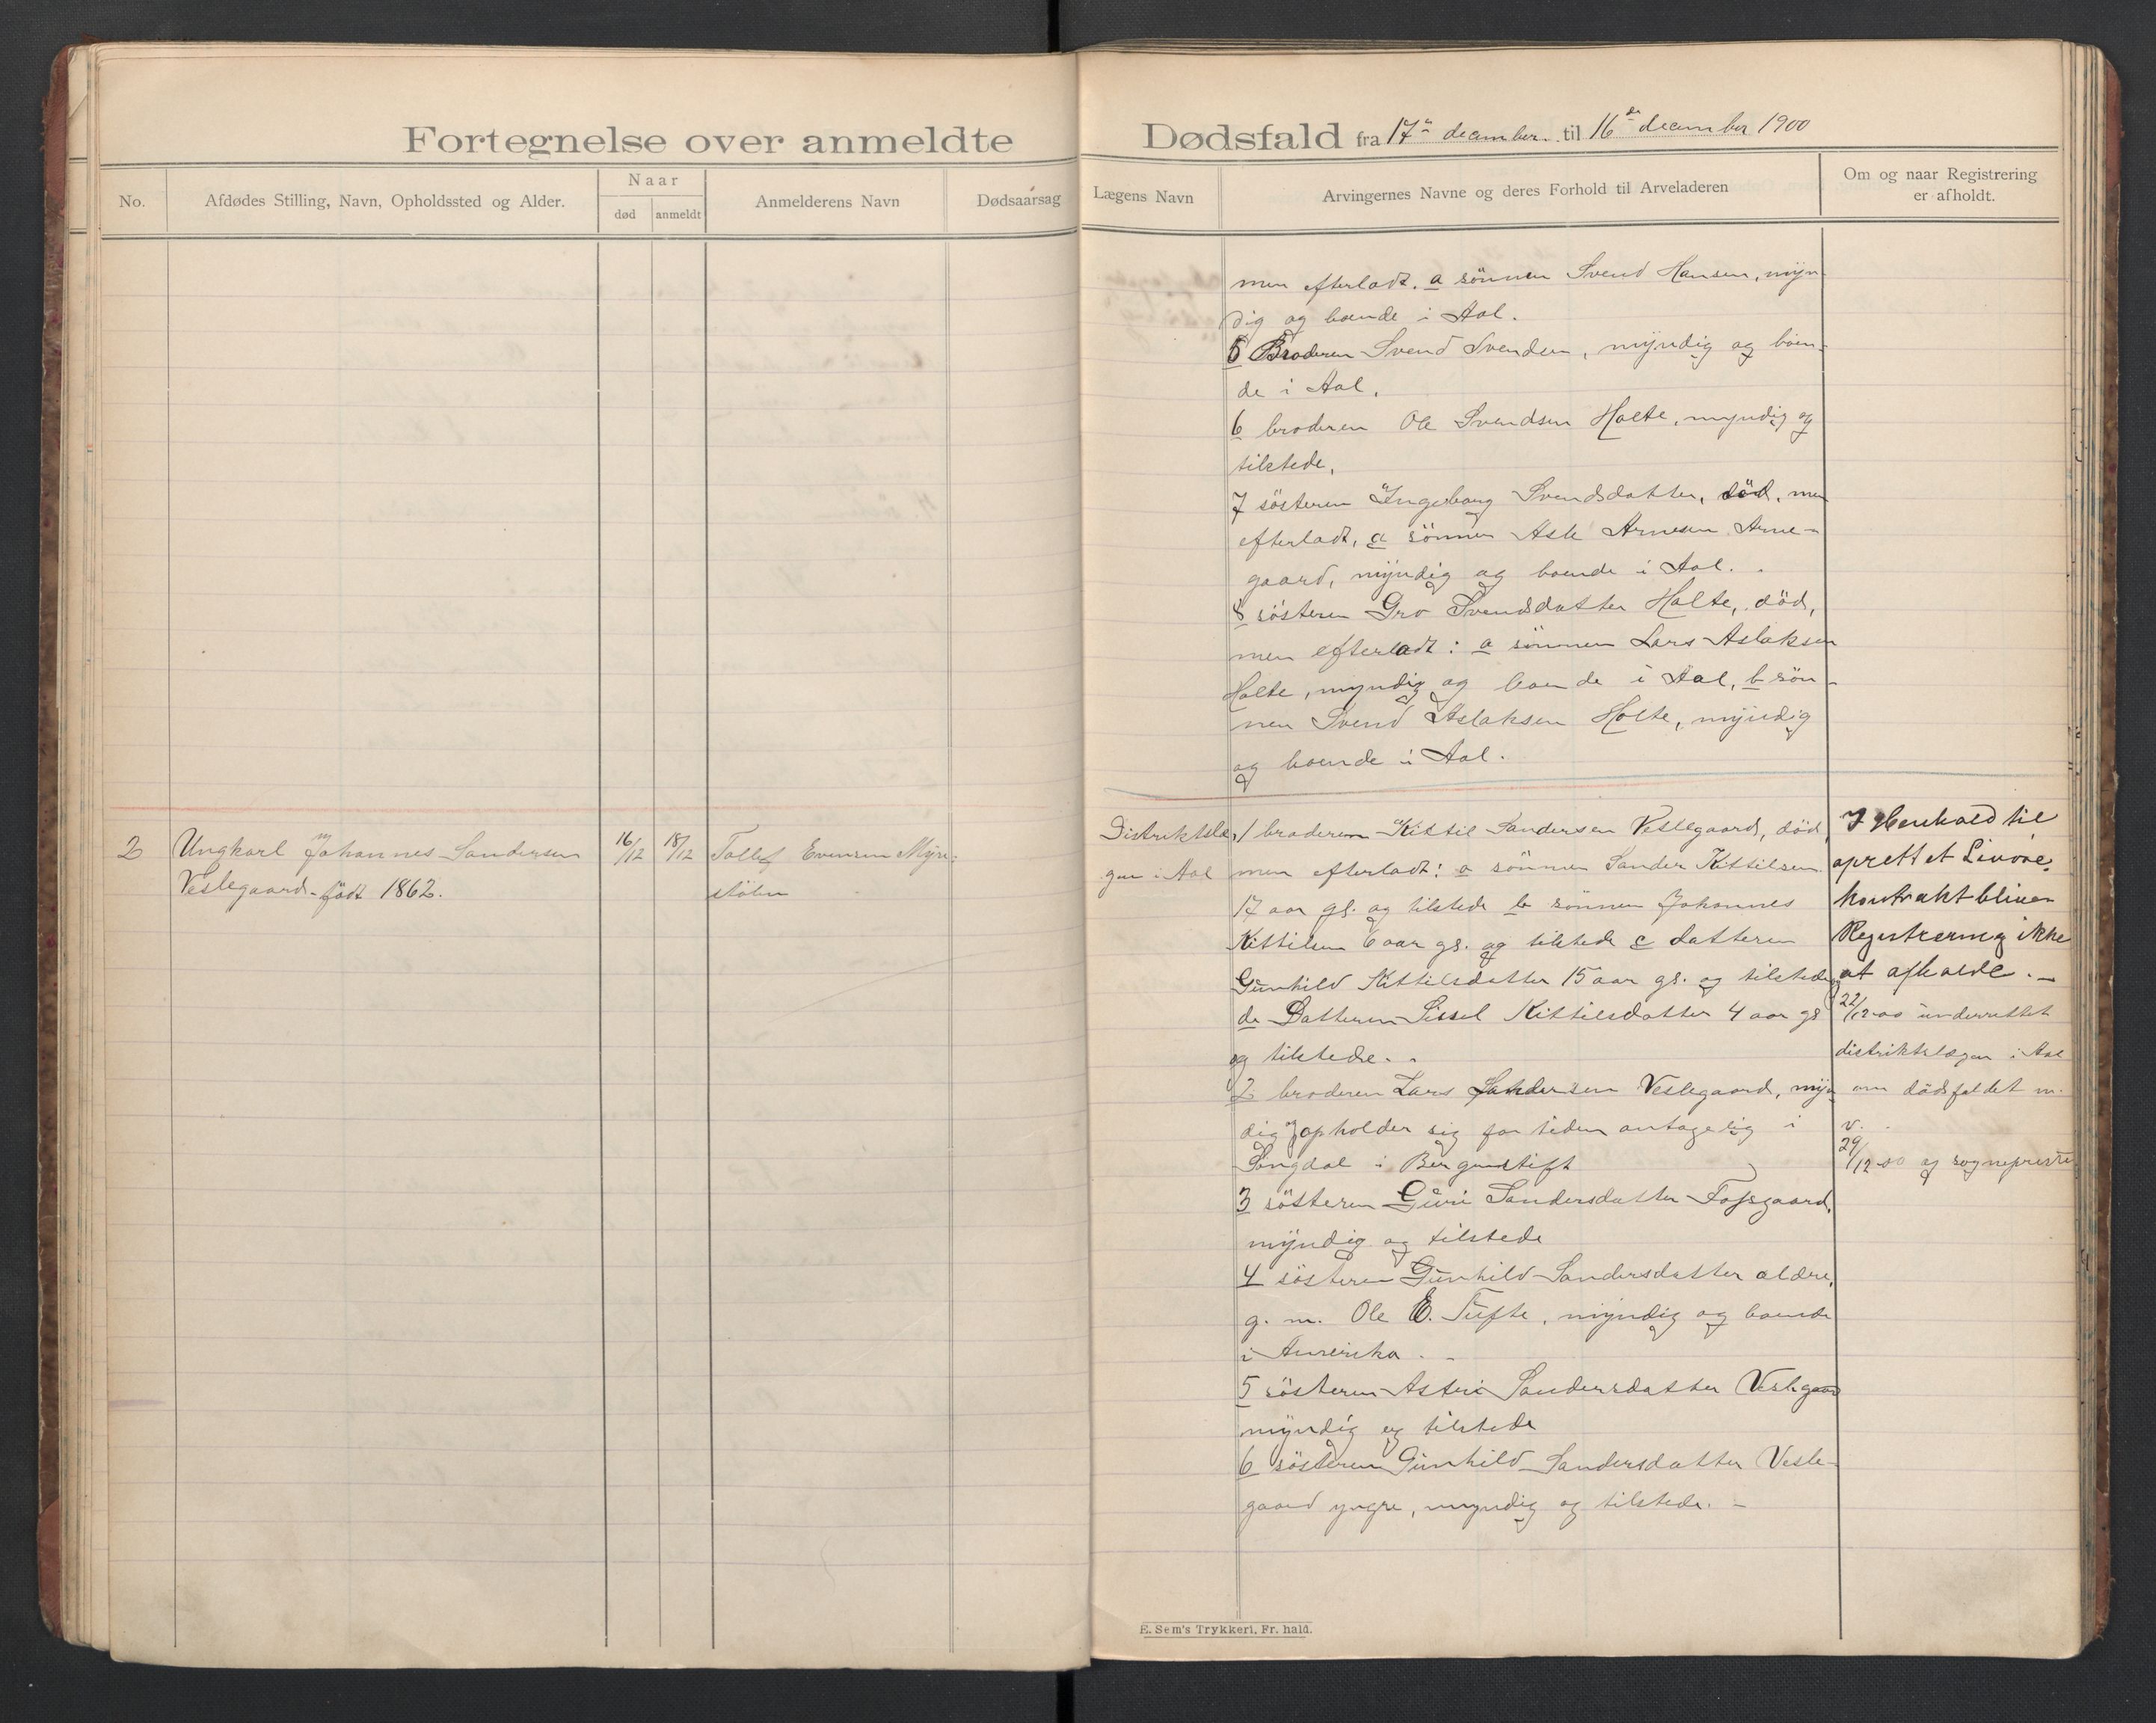 Fortegnelse over anmeldte Dødsfald fra 17de december til 16de december 1900
No.
Afdødes Stilling, Navn, Opholdssted og Alder.
Naar
død
anmeldt
Anmelderens Navn
Dødsaarsag
Lægens Navn
Arvingernes Navne og deres Forhold til Arveladeren
Om og naar Registrering
er afholdt.
men efterladt. a sönnen Svend Hansen, myn
dig og boende i Aal.
5 Broderen Svend Svendsen, myndig og boen-
de i Aal.
6 broderen Ole Svendsen Holte, myndig og
tilstede,
7 sösteren Ingeborg Svendsdatter, död, men
efterladt, a sönnen Asle Arnesen Arne-
gaard, myndig og boende i Aal.
8 sösteren Gro Svendsdatter Holte, död,
men efterladt: a sönnen Lars Aslaksen
Holte, myndig og boende i Aal, b sön-
nen Svend Aslaksen Holte, myndig
og boende i Aal.
2
Ungkarl Johannes Sandersen
Veslegaard - födt 1862.
16/12
18/12
Tollef Evensen Myre-
stölen
Distriktslæ-
gen i Aal
1 broderen Kittil Sandersen Veslegaard, död,
men efterladt: a sönnen Sander Kittilsen
17 aar gl. og tilstede b sönnen Johannes
Kittilsen 6 aar gl. og tilstede c datteren
Gunhild Kittilsdatter 15 aar gl. og tilstede
de Datteren Sissel Kittilsdatter 4 aar gl
og tilstede.
2 broderen Lars Sandersen Veslegaard, myn
dig opholder sig for tiden antagelig i
Sogndal i Bergenstift
3 sösteren Guri Sandersdatter Fossgaard,
myndig og tilstede
4 sösteren Gunhild Sandersdatter ældre,
g. m. Ole E. Tufte, myndig og boende
i Amerika.
5 sösteren Astri Sandersdatter Veslegaard
myndig og tilstede
6 sösteren Gunhild Sandersdatter Vesle-
gaard yngre, myndig og tilstede. -
I Henhold til
oprettet Livøre-
kontrakt bliver
Registrering ikke
at afholde. -
22/12 00 underrettet
distriktslægen i Aal
om dödsfaldet m.
v.
29/12 00 og sognepresten
E. Sem's Trykkeri, Fr. hald.